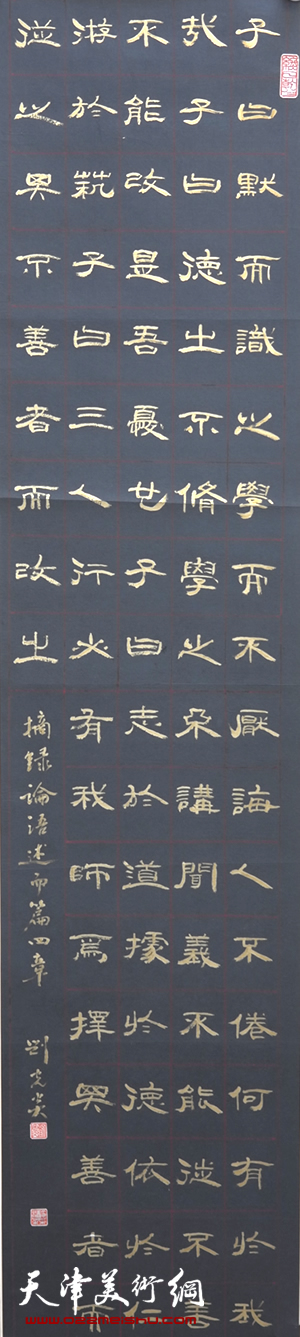 子曰默而識之學而不厭誨人不倦何有於我
哉子曰德之不脩學之不講聞義不能徙不善
不能改是吾憂也子曰志於道據於德依於仁
游於蓺子曰三人行必有我師焉擇其善者而
從之其不善者而改之
摘錄論語述而篇四章 劉
天津美術網